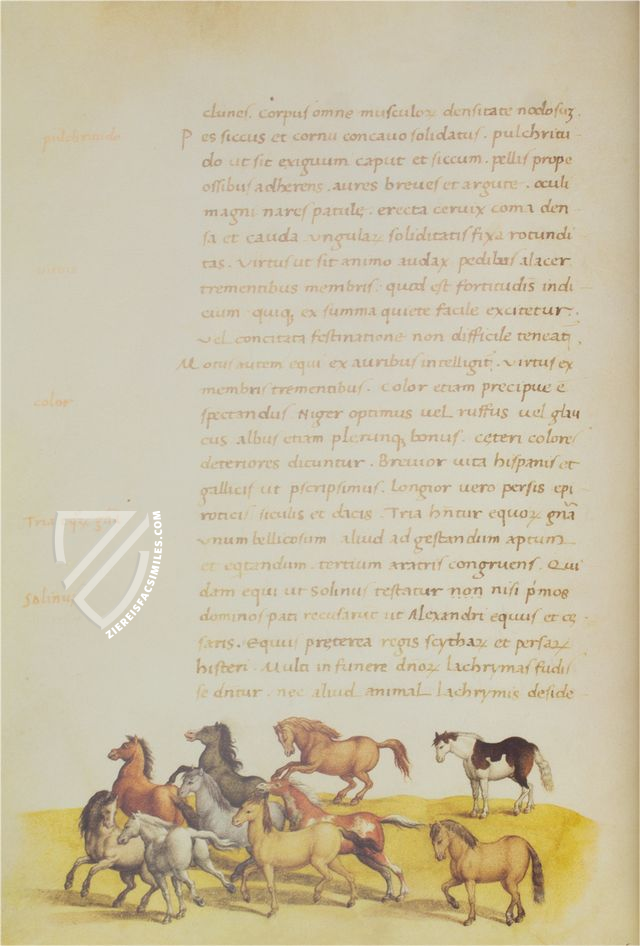 clunes. Corpus omne musculoꝝ densitate nodosuꝫ.
pulchritudo
Pes siccus et cornu concavo solidatus. pulchritu
do ut sit exiguum caput et siccum. pellis prope
ossibus adherens. aures breves et argute. oculi
magni nares patulę. erecta cervix coma den
sa et cauda ungulaꝝ soliditatis fixa rotundi
virtus
tas. Virtus ut sit animo audax pedibus alacer
trementibus membris. quod est fortitudis indi
cium quiq; ex summa quiete facile excitetur.
Vel concitata festinatione non difficile teneat
Motus autem equi ex auribus intelligit. Virtus ex
color
membris trementibus. Color etiam precipue ē
spectandus Niger optimus uel ruffus uel glau
cus albus etiam plerunq; bonus. cęteri colores
deteriores dicuntur. Brevior vita hispanis et
gallicis ut pscripsimus. Longior uero persis epi
Tria
rotici siculis et dacis. Tria hn̄tur equoꝝ gn̄a
unum bellicosum aliud ad gestandum aptum
et eqtandum. tertium aratris congruens. Qui
Solinus
dam equi ut Solinus testatur non nisi p̄mos
dominos pati recusarūt ut Alexandri equus et cę
saris. Equus pręterea regis scythaꝝ et persaꝝ
histeri. Multi in funere dnoꝝ lachrymas fudis
se dn̄tur. nec aliud animal lachrymis deside
ZIEREISFACSIMILES.COM